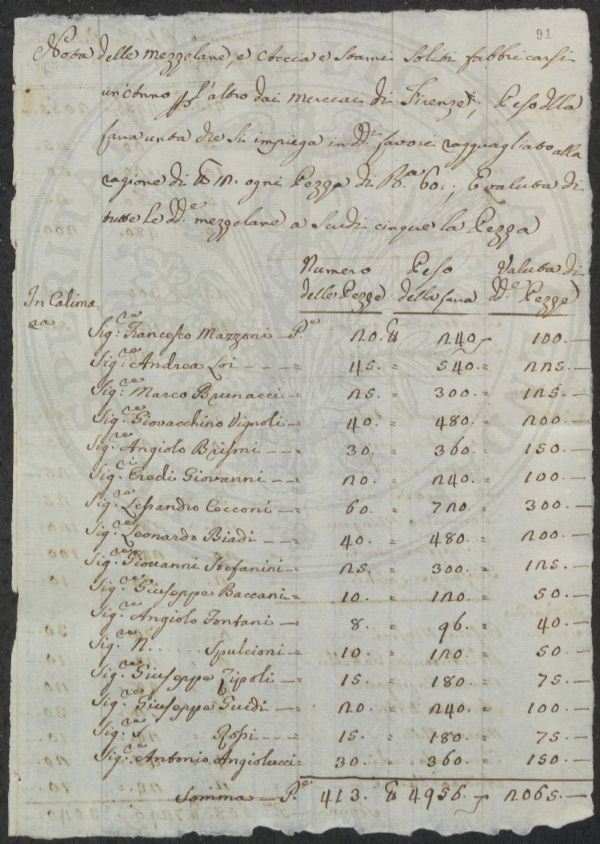 91
Nota delle mezzelane, e Accia e Stami Soliti fabbricarsi
un'Anno p l'altro dai Merciai di Firenze, Peso della
lana unta che si impiega in dd.i lavori ragguagliato alla
ragione di ℔ 12. ogni Pezza di B.a 60., e valuta di
tutte le dd.e mezzelane a Scudi cinque la Pezza
Numero Peso Valuta di
delle Pezze della lana dd.e Pezze
In Calima
ra
Sig.re Francesco Mazzoni - P.e 20. ℔ 240 100.—
Sig.re Andrea Loi - - - = 45. = 540. = 225.—
Sig.re Marco Brunacci = 25. = 300. = 125.—
Sig.re Giovacchino Vignoli = 40. = 480. = 200.—
Sig.re Angiolo - - = 30. = 360. = 150.—
Sig.ri Eredi Giovanni - - = 20. = 240. = 100.—
Sig.re Lesandro Cecconi = 60. = 720. = 300.—
Sig.re Leonardo Biadi - - = 40. = 480. = 200.—
Sig.re Giovanni Stefanini = 25. = 300. = 125.—
Sig.re Giuseppe Baccani = 10. = 120. = 50.—
Sig.re Angiolo Fontani - = 8. = 96. = 40.—
Sig.re N. ...... Spulcioni = 10. = 120. = 50.—
Sig.re Giuseppe Zipoli - = 15. = 180. = 75.—
Sig.re Giuseppe Guidi - = 20. = 240. = 100.—
Sig.re Rossi - - - = 15. = 180. = 75.—
Sig.re Antonio Angiolucci = 30. = 360. = 150.—
Somma - P.e 413. ℔ 4956 2065.—